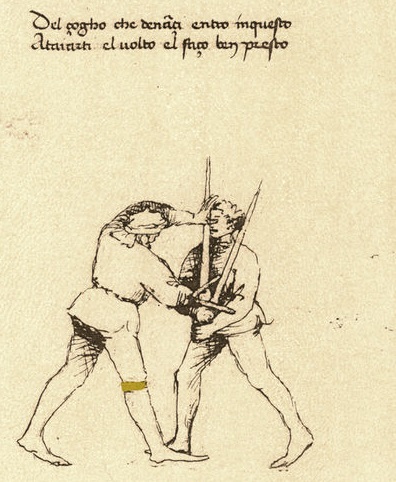 Del çogho che denãçi entro in questo
el volto el faço ben presto